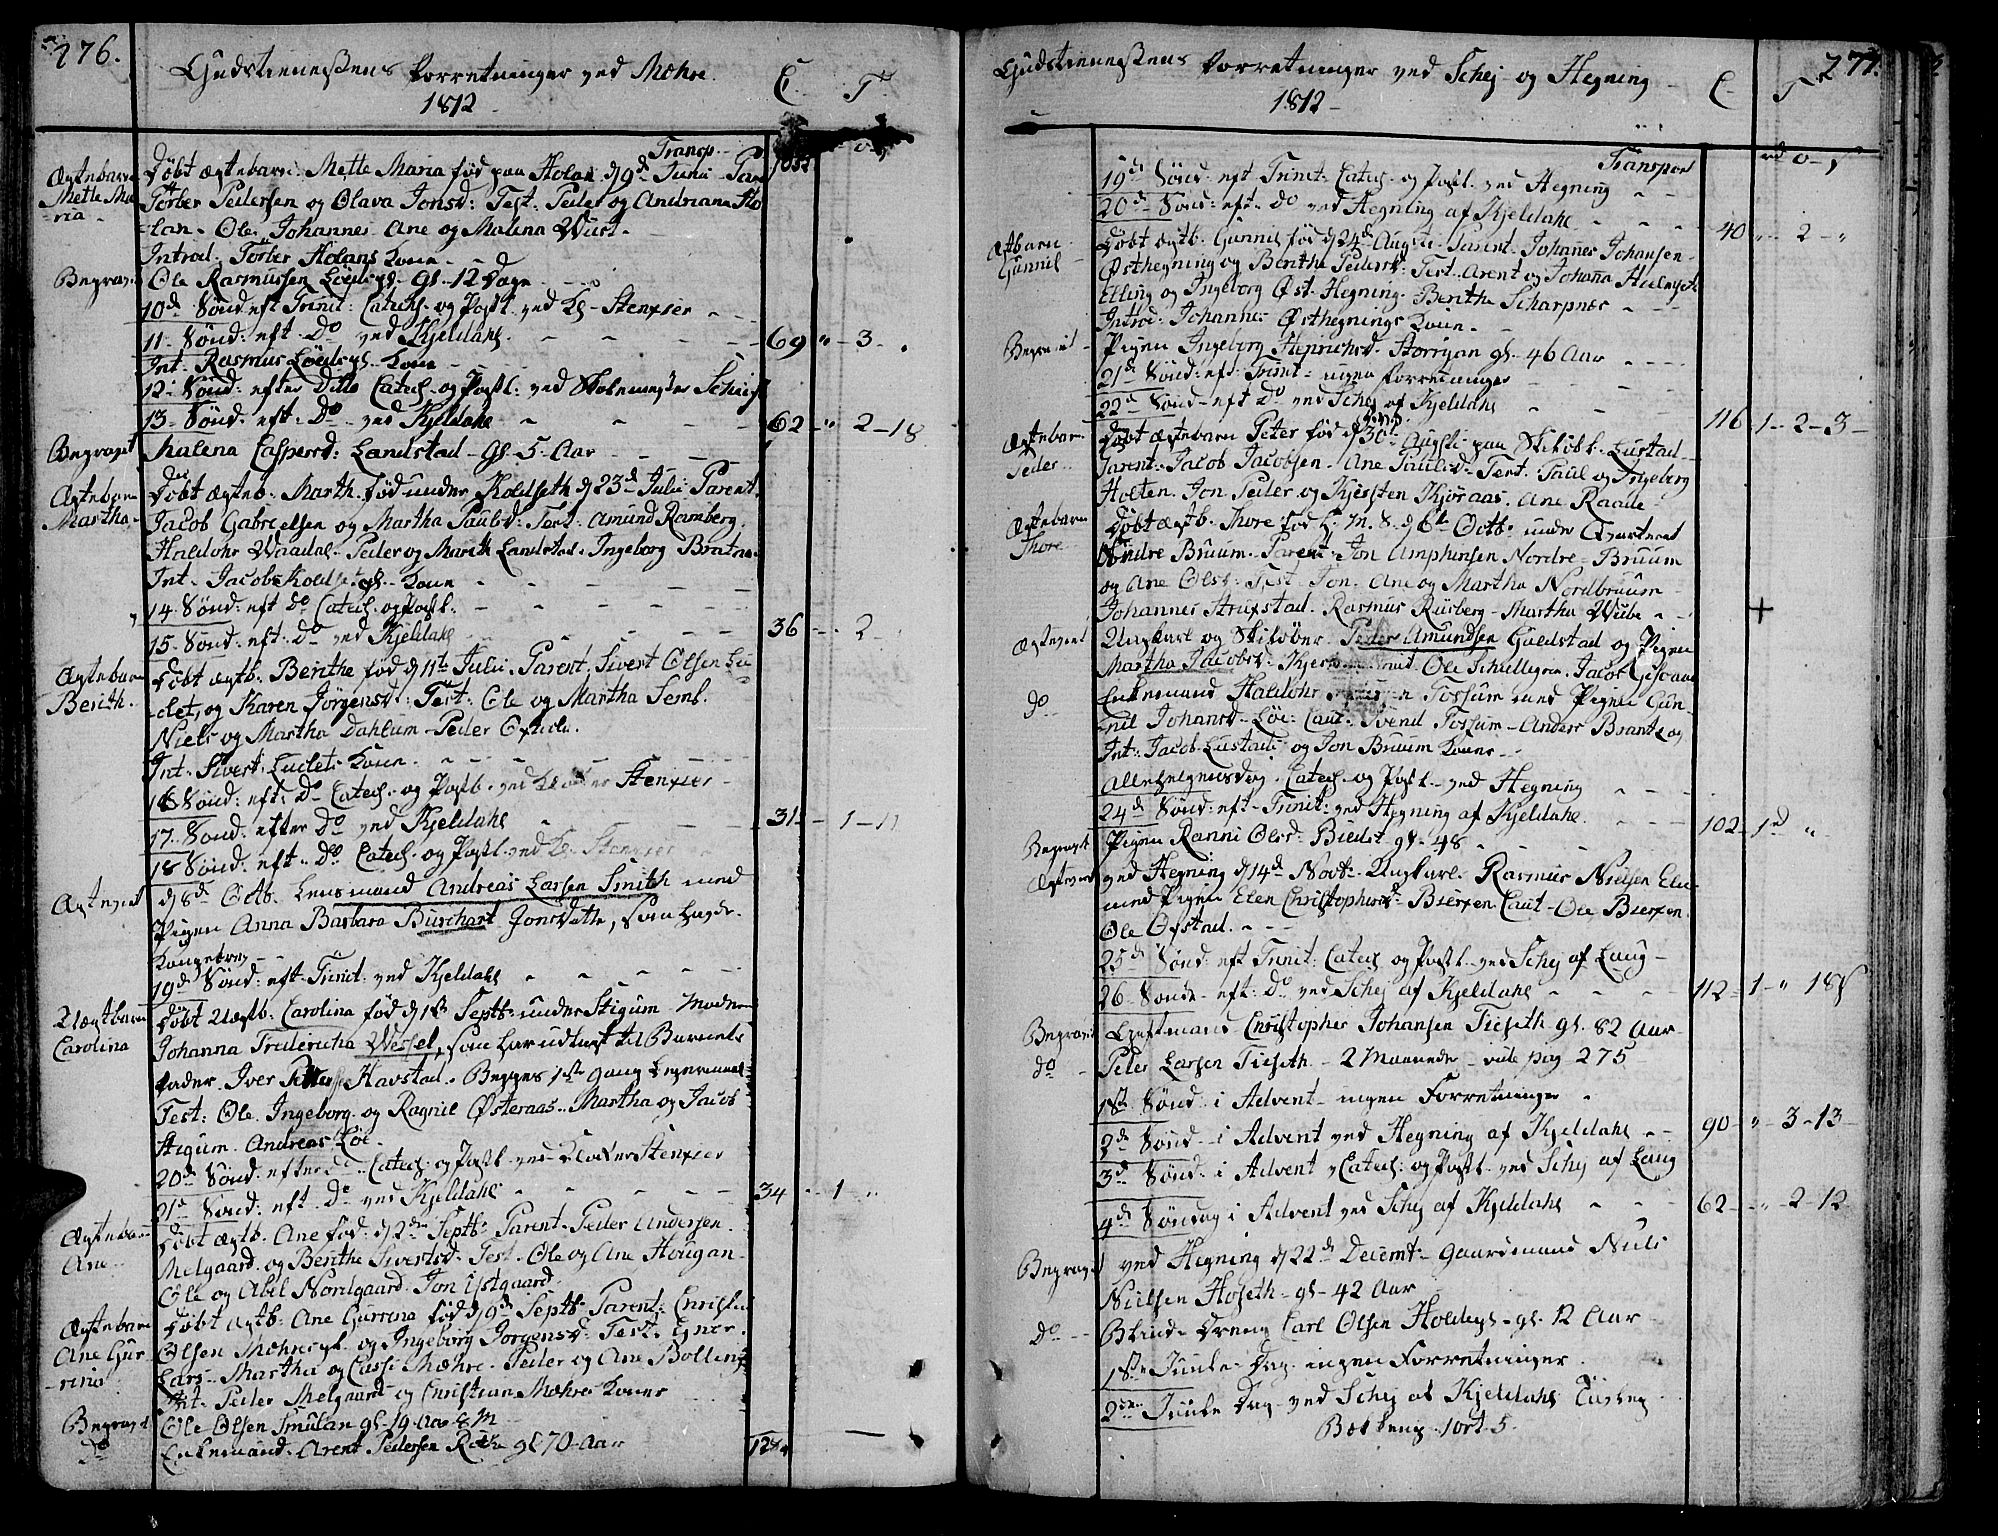 276.
Gudstienestens Forretninger ved Mæhre
1812
C. T
Transp 1052
Ægtebarn Mette Maria
Døbt Ægtebarn: Mette Maria fød paa Holan d 9d Junii Par
Torber Pedersen og Olava Jonsd: Test: Peder og Andriana Ho
-lan. Ole, Johannes Ane og Malena Wist.
Introd: Torber Holans Kone
Begravet Ole Rasmussen gl. 12 Dage
10d Sønd. eft Trinit: Catech. og Post. ved Kl. Stenxier
11 Sønd: eft. Do ved Kjeldahl 69 " 3
Int. Rasmus Kone
12 Sønd: efter Ditto Catech. og Post: ved Skolemester
13 Sønd: eft: Do ved Kjeldahl 62 " 2 - 18
Begravet Malena Caspersd: Landstad - gl. 5 Aar
Ægtebarn Martha
Døbt Ægteb: Marth. fød under Koldseth d 23d Julii Parent
Jacob Gabrielsen og Martha Paulsd: Test: Amund Ramberg
Haldohr Waadal. Peder og Marith Landstad. Ingeborg Brataa
Int. Jacob Kone
14 Sønd: eft Do Catech. og Post:
15 Sønd: eft: Do ved Kjeldahl 36 - 2
Ægtebarn Berith.
Døbt Ægtb: Berithe fød d 11te Julii. Parent: Sivert Olsen Lu
-det, og Karen Jørgensd: Test: Ole og Martha Semb.
Niels og Martha Dahlum. Peder
Int. Sivert Ludets Kone
16 Sønd: eft: Do Catech. og Post. ved Klokker Stenxier
17 Sønd: efter Do ved Kjeldahl 31 - 1 - 11
18 Sønd: eft. Do. Catech. og Post. ved Kl. Stenxier
Ægteviet d 8d Octb. Lensmand Andreas Larsen Smith med
Pigen Anna Barbara Burchart Jonsdatter, som havde
Kongebrev
19d Sønd: eft. Trinit: ved Kjeldahl
Uægtbarn Carolina
Døbt Uægtb: Carolina fød d 1ste Septb: under Stigum. Moder
Johanna Fredericha Wessel, som har udlagt til Barnets
Fader. Iver Havstad. Begges 1ste gang Leiermaal
Test: Ole. Ingeborg og Ragnil Østeraas. Martha og Jacob
Stigum. Andreas Löe.
20d Sønd: efter Do. Catech. og Post. ved Klokker Stenxier
21d Sønd: eft. Do ved Kjeldahl 34 - 1 "
Ægtebarn Ane
Døbt Ægtb: Ane fød d 2den Septb: Parent: Peder Andersen
Melgaard og Berithe Sivertsd: Test: Ole og Ane Hougan
Ole og Abel Nordgaard. Jon Østgaard
Ægtebarn Ane Gurrina
Døbt Ægtb: Ane Gurrina fød d 9d Septb: Parent: Christen
Olsen og Ingeborg Jørgensd: Test:
Lars. Martha og Mæhre. Peder og Ane Bolling
Int. Peder Melgaards og Christian Mæhres Koner
Begravet Ole Olsen Smulan gl. 19 Aar 8 M
Do Enkemand Arent Pedersen gl 70 Aar 1284
277.
Gudstienestens Forretninger ved Schej og Hegning
1812
C T
Transport
19d Sønd: eft Trinit: Catech. og Post. ved Hegning
20d Sønd: eft. Do ved Hegning af Kjeldahl 40 " 2 "
Ægtbarn Gunnil
Døbt Ægtb. Gunnil fød d 24d August: Parent: Johanes Johansen
Østhegning og Berithe Pedersd: Test. Arent og Johana
Elling og Ingeborg Øst-Hegning. Berithe Scharpnes
Introd. Johannes Østhegnings Kone
Begravet Pigen Ingeborg Henrichsd. gl. 46 Aar
21d Sønd: eft Trinit: ingen Forretninger
22d Sønd: eft Do ved Schej af Kjeldahl 116 1 - 2 - 3
Ægtebarn Peder
Døbt Ægtebarn Peter fød d 30te August: paa Lustad
Parent: Jacob Jacobsen. Ane Paulsd. Test: Paul og Ingeborg
Holten. Jon Peder og Kjersten Kjøraas. Ane Raade
Ægtebarn Thore
Døbt Ægtb: Thore fød d 6te Octb: under Qvarteret
Søndre Bruum. Parent: Jon Amphinsen Nordre-Bruum
og Ane Olsd: Test: Jon. Ane og Martha Nordbruum
Johannes Strugstad. Rasmus Rusberg. Martha Wibe +
Ægteviet Ungkarl og Skiløber Peder Amundsen Guldstad og Pigen
Martha Jacobsd:
Do Enkemand Haldohr Tossum med Pigen Gun-
-nil Johansd. Löe: Caut: Svend Tossum - Anders Brandt og
Int: Jacob Lustads og Jon Bruum Koner
Allehelgensdag. Catech. og Post. ved Hegning
24d Sønd: eft. Trinit: ved Hegning af Kjeldahl 102 - 1d "
Begravet Pigen Ranni Olsd. gl. 48
Ægteviet ved Hegning d 14d Novb: Ungkarl Rasmus Nielsen
med Pigen Elen Christophersd: Bierxen Caut - Ole Bierxen
Ole Ofstad.
25d Sønd: eft Trinit: Catech og Post. ved Schej af Laug
26 Sønd: eft: Do ved Schej af Kjeldahl 112 - 1 - " 18
Begravet Christopher Johansen Tiseth gl. 82 Aar
do Peder Larsen Tiseth - 2 Maaneder - vide pag 275
1ste Sønd: i Advent - ingen Forretninger
2d Sønd: i Advent ved Hegning af Kjeldahl 90 - " 3 - 13
3d Sønd: i Advent Catech: og Post: ved Schej af Laug
4d Søndag i Advent ved Schej af Kjeldahl 62 - " 2 - 12
Begravet ved Hegning d 22d Decemb: Gaardmand Niels
Nielsen Hoseth - gl. 42 Aar
Do Blinde Dreng Carl Olsen gl. 12 Aar
1ste Juule Dag ingen Forretninger
2den Juule Dag ved Schej af Kjeldahl
1 ort 5.